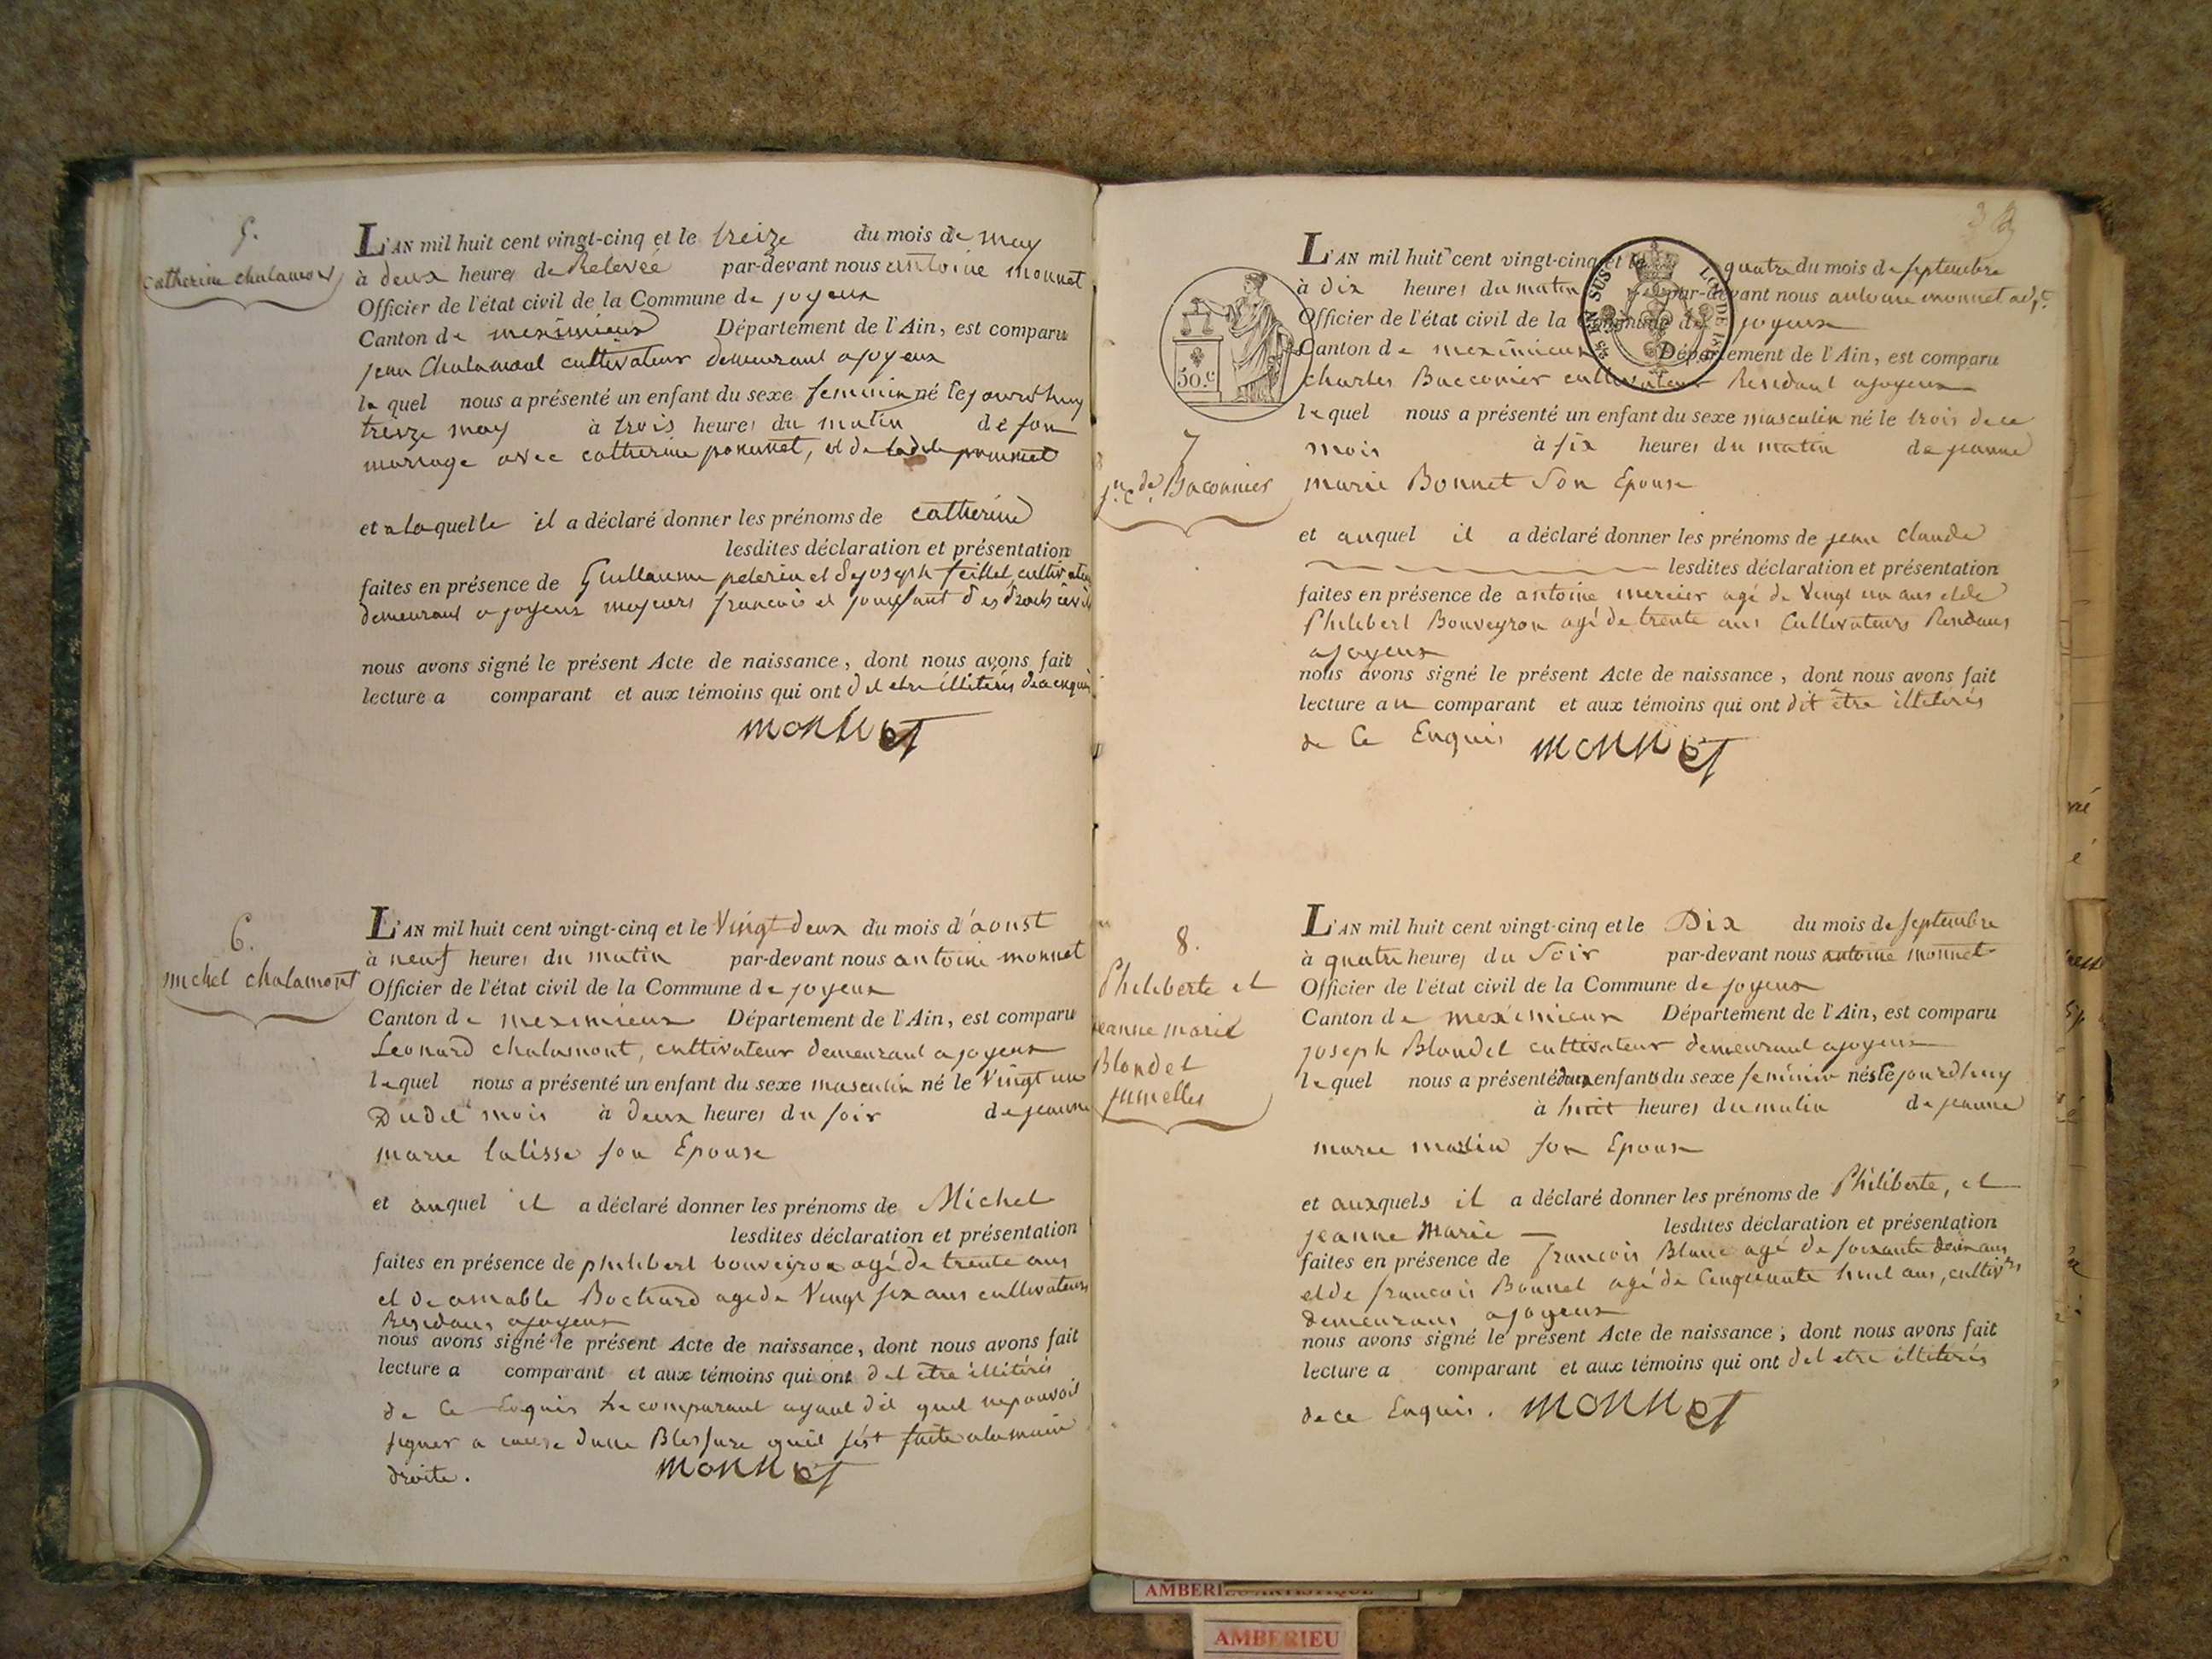 5.
catherine chalamont
L'AN mil huit cent vingt-cinq et le treize du mois de may
à deux heures de Relevée par-devant nous antoine monnet
Officier de l'état civil de la Commune de joyeux
Canton de meximieux Département de l'Ain, est comparu
jean Chalamont cultivateur demeurant a joyeux
lequel nous a présenté un enfant du sexe feminin né le jourdhuy
treize may à trois heures du matin de son
mariage avec catherine ponumet, et de
et a laquelle il a déclaré donner les prénoms de catherine
lesdites déclaration et présentation
faites en présence de Guillaume pelerin et de joseph feillet, cultivateurs
demeurant a joyeux majeurs francois et jouissant des droits civils
nous avons signé le présent Acte de naissance, dont nous avons fait
lecture a comparant et aux témoins qui ont dit etre illiterés de ce enquis
monnet
6.
michel chalamont
L'AN mil huit cent vingt-cinq et le Vingt deux du mois d'aoust
à neuf heures du matin par-devant nous antoine monnet
Officier de l'état civil de la Commune de joyeux
Canton de meximieux Département de l'Ain, est comparu
Leonard chalamont, cultivateur demeurant a joyeux
lequel nous a présenté un enfant du sexe masculin né le Vingt un
Dudit mois à deux heures du soir de jeanne
marie latisse son Epouse
et auquel il a déclaré donner les prénoms de Michel
lesdites déclaration et présentation
faites en présence de philibert bouveyron agé de trente ans
et de amable Bochard agé de Vingt six ans cultivateurs
Residans a joyeux
nous avons signé le présent Acte de naissance, dont nous avons fait
lecture a comparant et aux témoins qui ont dit être illitérés
de Ce Enquis Le comparant ayant dit quil ne pouvoit
signer a cause dune Blessure quil sest faite a la main
droite. monnet
50.c
EN SUS
7
jn. cde. Baconnier
L'AN mil huit cent vingt-cinq et le quatre du mois de septembre
à dix heures du matin par-devant nous antoine monnet adjt
Officier de l'état civil de la Commune de joyeux
Canton de meximieux Département de l'Ain, est comparu
charles Bacconier cultivateur Residant a joyeux
lequel nous a présenté un enfant du sexe masculin né le trois de ce
mois à six heures du matin de jeanne
marie Bonnet Son Epouse
et auquel il a déclaré donner les prénoms de jean claude
lesdites déclaration et présentation
faites en présence de antoine mercier agé de Vingt un ans et de
Philibert Bouveyron agé de trente ans Cultivateurs Residans
a joyeux
nous avons signé le présent Acte de naissance, dont nous avons fait
lecture au comparant et aux témoins qui ont dit être illitérés
de Ce Enquis monnet
8.
Philiberte et
jeanne marie
Blondet
jumelles
L'AN mil huit cent vingt-cinq et le Dix du mois de septembre
à quatre heures du Soir par-devant nous antoine monnet
Officier de l'état civil de la Commune de joyeux
Canton de meximieux Département de l'Ain, est comparu
joseph Blondet cultivateur demeurant a joyeux
lequel nous a présenté deux enfants du sexe feminin nés le jourdhuy
à huit heures du matin de jeanne
marie son Epouse
et auxquels il a déclaré donner les prénoms de Philiberte, et
jeanne Marie lesdites déclaration et présentation
faites en présence de francois Blanc agé de soixante deux ans
et de francois Bonnet agé de Cinquante huit ans, cultivrs
demeurans a joyeux
nous avons signé le présent Acte de naissance, dont nous avons fait
lecture a comparant et aux témoins qui ont dit etre illiterés
de ce Enquis. monnet
AMBERIEU